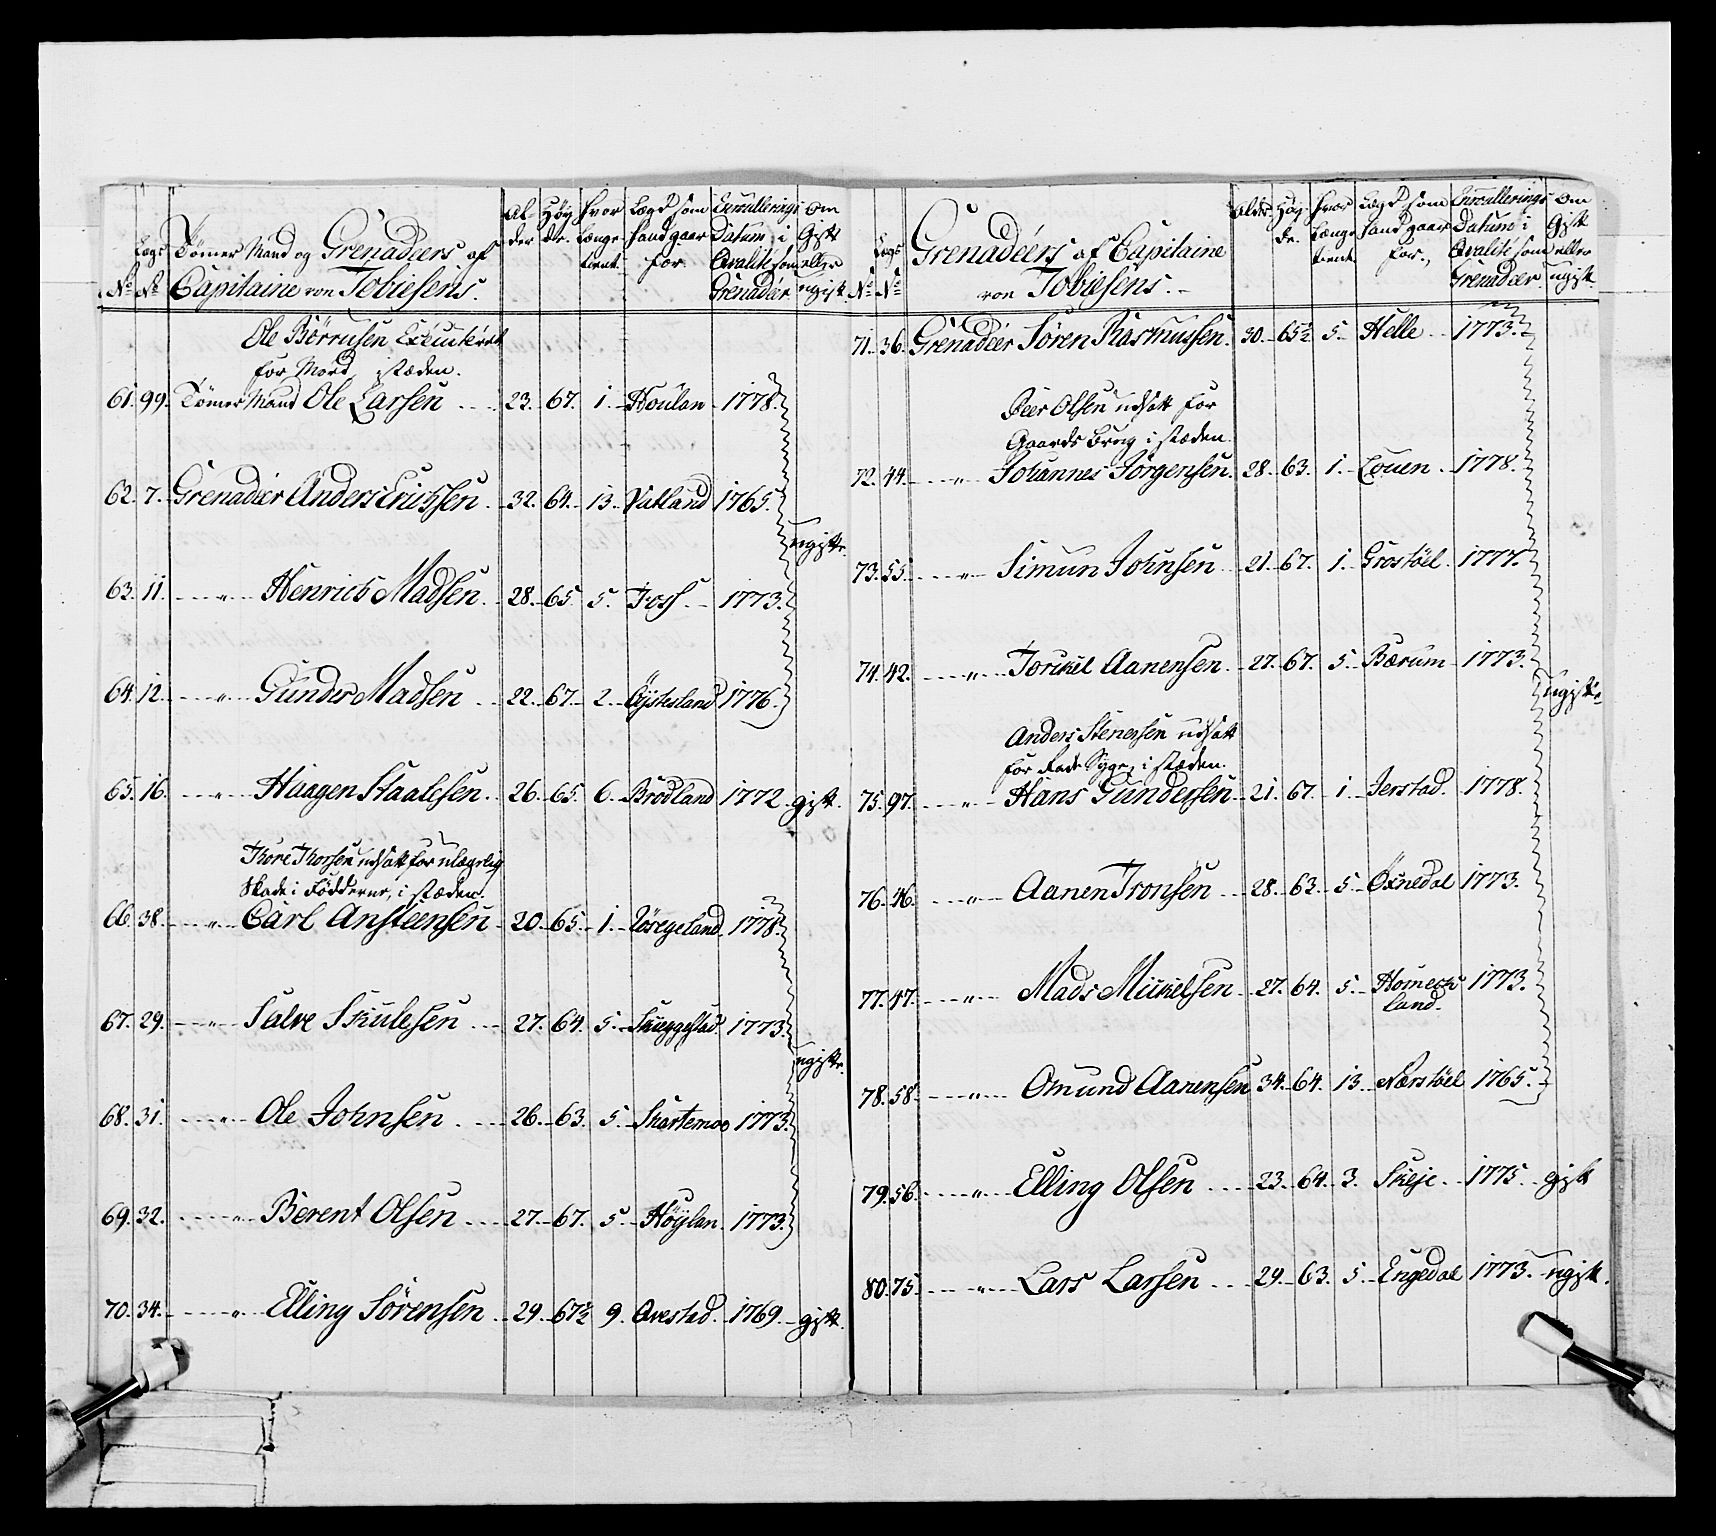 No Lægs No Tømer Mand og Grenadeers af Capitaine von Tobiesens. Alder Høyde. hvor Længe tient. Lægd som hand gaar for Enroullerings Datum i Qvalité som Grenadeer Om Gift eller ugift
Ole Börrusen Executeret
for Mord, i stæden.
61. 99. Tømer Mand Ole Larsen 23. 67. 1. Houlan 1778.
62. 7. Grenadeer Anders Erichsen 32. 64. 13. Vatland 1765.
ugifte.
63. 11. " Henrich Madsen 28. 65. 5. Foss 1773.
64. 12. " Gunder Madsen 22. 67. 2. Øjslesland 1776.
65. 16. " Haagen Staalesen 26. 65. 6. Brödland 1772 gift.
Thore Thorsen udsatt for ulægelig
Skade i Födderne, i stæden.
66. 38. " Carl Ansteensen 20. 65. 1. 1778.
67. 29. " Salve Skulesen 27. 64. 5. Skeggestad 1773.
ugifte.
68. 31. " Ole Johnsen 26. 63. 5. Skartemoe 1773.
69. 32. " Berent Olsen 27. 67. 5. Höylan 1773.
70. 34. " Elling Sörensen 29. 67½ 9. Avestad. 1769. gift.
No Lægs No Grenadeers af Capitaine von Tobiesens. Alder Høyde. hvor Længe tient Lægd som hand gaar for., Enroullerings Datum i Qvalité som Grenadeer Om Gift eller ugift
71. 36. Grenadeer Sören Rasmussen. 30. 65½ 5. Helle 1773.
Peer Olsen udsatt for
Gaards brug i stæden.
72. 44. " Johannes Jörgensen. 28. 63. 1. Louen 1778.
73. 55. " Simun Johnsen 21. 67. 1. Grostöel 1777.
74. 42. " Torkel Aanensen 27. 67. 5. Bærum 1773.
ugifte
Anders Stenersen udsatt
for Rade Syge, i stæden.
75. 97. " Hans Gundersen 21. 67. 1. Jerstad. 1778.
76. 46. " Aanen Tronsen 28. 63. 5. Øxnedal 1773.
77. 47. " Mads Mickelsen 27. 64. 5. Homecksland. 1773.
78. 58. " Omund Aanensen 34. 64. 13. Nærstöel 1765.
79. 56. " Elling Olsen 23. 64. 3. Skeje 1775. gift
80. 75. " Lars Larsen 29. 63. 5. Engedal 1773. ugift.